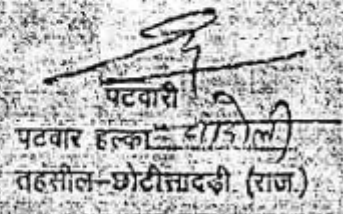 पटवारी
पटवार हल्का-
तहसील-छोटीसादड़ी (राज.)